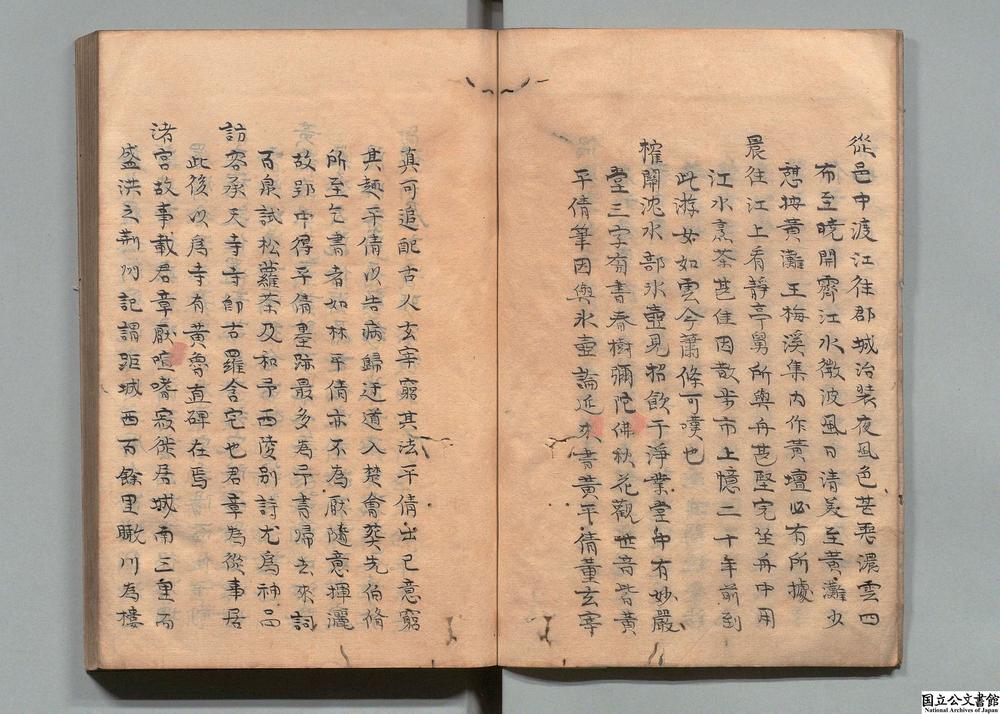 從邑中渡江往郡城治裝夜風色甚惡濃雲四
布至曉開霽江水微波風日清美至黃灘少
憩按黃灘王梅溪集內作黃壇必有所據
晨往江上看靜亭舅所與舟甚堅完坐舟中用
江水烹茶甚佳因散步市上憶二十年前到
此游女如雲今蕭條可嘆也
榷關沈水部氷壺見招飲于淨業堂中有妙嚴
堂三字有書春樹彌陀佛秋花觀世音皆黃
平倩筆因與氷壺論近來書黃平倩董玄宰
真可追配古人玄宰窮其法平倩出己意窮
其趣平倩以告病歸迂道入楚會葬先伯脩
所至乞書者如林平倩亦不為厭隨意揮灑
故郢中得平倩墨跡最多為予書歸去來詞
百泉試松蘿茶及和予西陵別詩尤爲神品
訪容承天寺寺即古羅含宅也君章為從事居
此後以爲寺有黃魯直碑在焉
渚宮故事載君章厭喧嗜寂徙居城南三里而
盛洪之荊州記謂距城西百餘里瞰川為樓
国立公文書館
National Archives of Japan